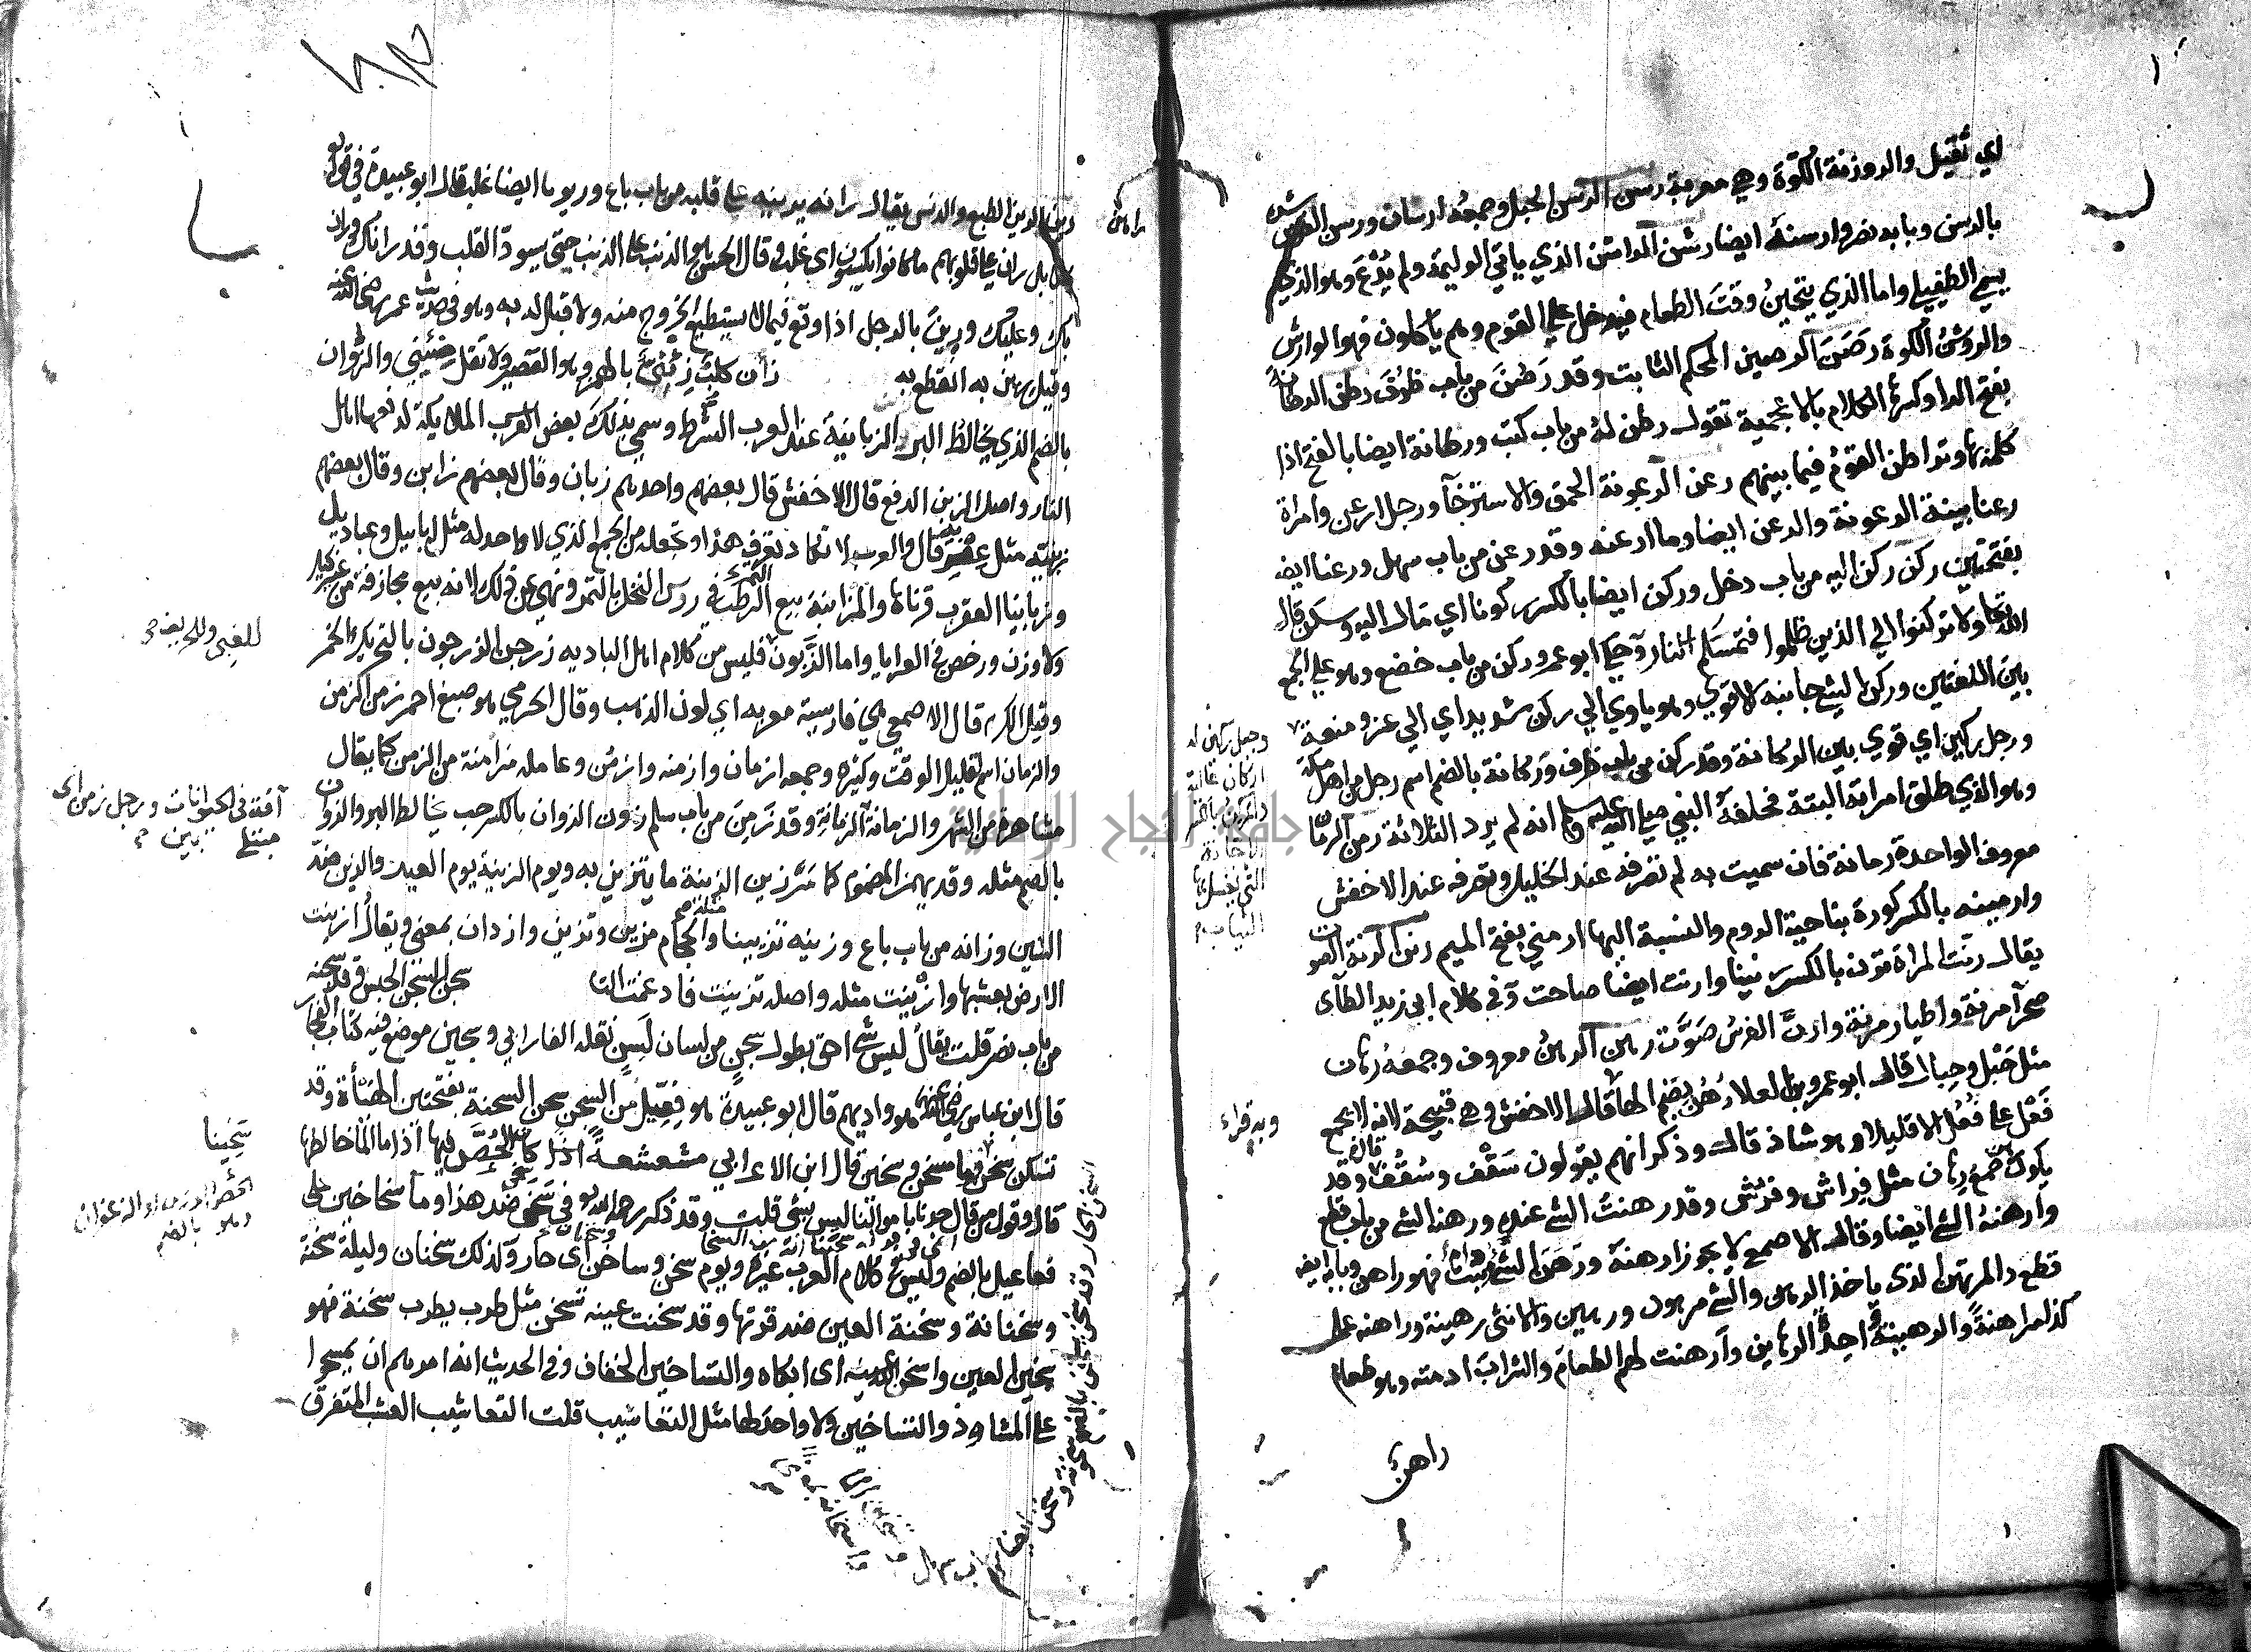 اي ثقيل والروزنة الكوة وهي معربة رسن الرسن الحبل وجمعه ارسان ورسن الفرس شده
بالرسن وبابه نصر وارسنه ايضا رشن الراشن الذي ياتي الوليمة ولم يُدْعَ وهو الذي
يسمي الطفيلي واما الذي يتحين وقت الطعام فيدخل علي القوم وهم ياكلون فهو الوارش
والروشن الكوة رصن الرصين المحكم الثابت وقد رصن من باب ظرف رطن الرطانة
بفتح الرا وكسرها الكلام بالاعجمية تقول رطن له من باب كتب ورطانة ايضا بالفتح اذا
كلمه بها وتراطن القوم فيما بينهم رعن الرعونة الحمق والاسترخآ ورجل ارعن وامراة
رعنا بينة الرعونة والرعن ايضا وما ارعنه وقد رعن من باب سهل ورعنا ايضا
بفتحتين ركن ركن اليه من باب دخل وركن ايضا بالكسر ركونا اي مال اليه وسكن قال
الله تعا ولا تركنوا الي الذين ظلموا فتمسكم النار وحكي ابو عمرو ركن من باب خضع وهو علي الجمع
بين اللغتين وركن الشئ جانبه الاقوي وهو ياوي الي ركن شديد اي الي عز ومنعة
ورجل ركين اي قوي بين الركانة وقد ركن من باب ظرف وركانة بالضم اسم رجل من اهل مكة
وهو الذي طلق امراته البتة فحلفه النبي صلي الله عليه وسلم انه لم يرد الثلاثة رمن الرمان
معروف الواحدة رمانة فان سميت به لم تصرفه عند الخليل وتصرفه عند الاخفش
وارمينه بالكسر كورة بناحية الروم والنسبة اليها ارمني بفتح الميم رنن الرنة الصوت
يقال رنت المراة ترن بالكسر رنينا وارنت ايضا صاحت وفي كلام ابي زيد الطآى
شجرآ مرنة واطيار مرنة وارنَّ الفرس صَوَّتَ رهن الرهن معروف وجمعه رهان
مثل حَبْل وحبال قال ابو عمرو بن العلا رُهُن بضم الها قال الاخفش وهي قبيحة لانه لا يجمع
فَعْل على فُعُل الا قليلا وهو شاذ قال وذكر انهم يقولون سَقْف وسُقُف قال وقد
يكون رهن جمع رهان مثل فِراش وفُرُش وقد رهنت الشئ عنده ورهنه الشئ من باب قطع
وارهنه الشئ ايضا وقال الاصمعي لا يجوز ارهنه ورَهَنَ الشئُ ثبت ودام فهو راهن وبابه ايضا
قطع والمرتهن الذى ياخذ الرهن والشئ مرهون ورهين والانثى رهينة وراهنه على
كذا مراهنةً والرهينة احد الرهاين وآرهنت لهم الطعام والشراب ادمته وهو طعام
راهن
ورجل ركين له
اركان عالية
والمركن بالكسر
الاجانة
التي يغسل فيها
الثياب
وبه قراء
راهن
رين الرين الطبع والدنس يقال رانه يرينه على قلبه من باب باع وريونا ايضا غلب قال ابو عبيدة في قوله
تعا بل ران على قلوبهم ما كانوا يكسبون اى غلب وقال الحسن هو الذنب على الذنب حتى يسود القلب وقد رانك وران
بك وعليك ورِين بالرجل اذا وقع فيما لا يستطيع الخروج منه ولا قبل له به وهو في حديث عمر رضي الله عنه
وقيل رين به انقطع به زأن كلب زِئْنيّ بالهمز وهو القصير ولا تقل صِئيني والزؤان
بالضم الذي يخالط البر الزبانية عند العرب الشرط وسمي بذلك بعض الملايكة لدفعها اهل
النار واصل الزبن الدفع قال الاخفش قال بعضهم واحدهم زبان وقال بعضهم زابن وقال بعضهم
زبنيه مثل عفرية قال والعرب لا تكاد تعرف هذا وتجعله من الجمع الذي لا واحد له مثل ابابيل وعباديل
وزبانيا العقرب قرناها والمزابنة بيع الرطب في روس النخل بالتمر ونهي عن ذلك لانه بيع مجازفة من غير كيل
ولا وزن ورخص في العرايا واما الزَّبون فليس من كلام اهل البادية زرجن الزرجون بالتحريك الخمر
وقيل الكرم قال الاصمعي هي فارسية معربه اي لون الذهب وقال الجرمي هو صبغ احمر زمن الزمن
والزمان اسم لقليل الوقت وكثيره وجمعه ازمان وازمنه وازمن وعامله مزامنة من الزمن كما يقال
مشاهرة من الشهر والزمانة وقد زَمِنَ من باب سلم زون الزوان بالكسر حب يخالط البر والزوان
بالضم مثله وقد يهمز المضموم كما مر زين الزينة ما يتزين به ويوم الزينة يوم العيد والزين ضد
الشين وزانه من باب باع وزينه تزيينا مثله والحجام مزين وتزين وازدان بمعنى ويقال ازينت
الارض بعشبها وازَّينت مثله واصله تزينت فادغمت التا سجن السجن الحبس وقد سجنه
من باب نصر قلت يقال ليس شئ احق بطول سجن من لسان نقله الفارابي وسجين موضع فيه كتاب الفجار
قال ابن عباس رضي الله عنهما هو واديهم قال ابو عبيدة هو فِعِّيل من السجن سحن السحنة بفتحتين الهيأة وقد
تسكن سخن ما مسخن وسخين قال ابن الاعرابي مشعشعةً كان الحُصَّ فيها اذا ما المآ خالطها
قال وقول من قال جدنا باموالنا ليس بشئ قلت وقد ذكر رحمه الله هو في سَخِيَ ضد هذا ومآ سخاخين على
فعاعيل بالضم وليس في كلام العرب غيره ويوم سخن وساخن اى حار وكذلك سخنان وليلة سخنة
وسخنانة وسخنة العين ضد قرتها وقد سخنت عينه تسخن مثل طرب يطرب سخنة فهو
سخين العين واسخن الله عينه اى ابكاه والتساخين الخفاف وفي الحديث انه امرهم ان يمسحوا
على المشاوذ والتساخين ولا واحد لها مثل التعاشيب قلت التعاشيب العشب المتفرق
آفة في الحيوانات ورجل زمن اى
مبتلى بين
سخينا
الحُص الورس او الزعفران
وهو بالضم